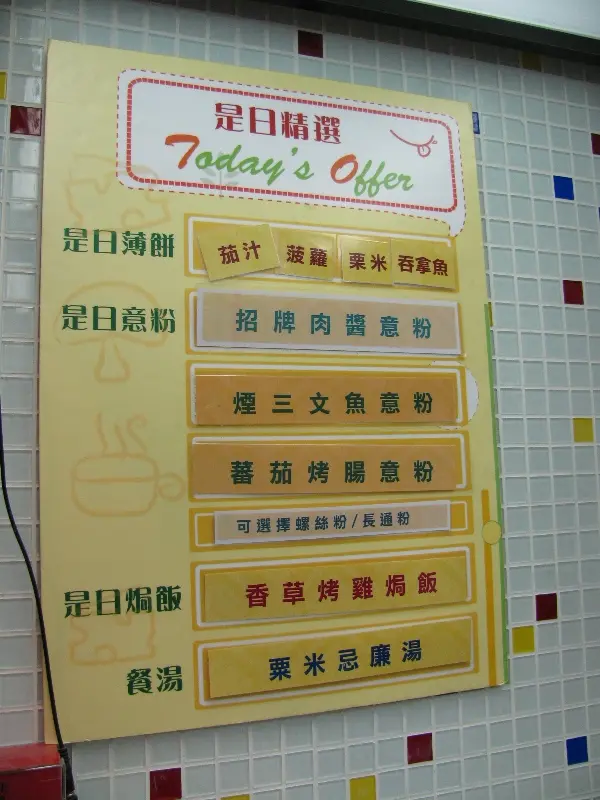 是日精選
Today's Offer
是日薄餅 茄汁 菠蘿 栗米 吞拿魚
是日意粉 招牌肉醬意粉
煙三文魚意粉
蕃茄烤腸意粉
可選擇螺絲粉/長通粉
是日焗飯 香草烤雞焗飯
餐湯 粟米忌廉湯